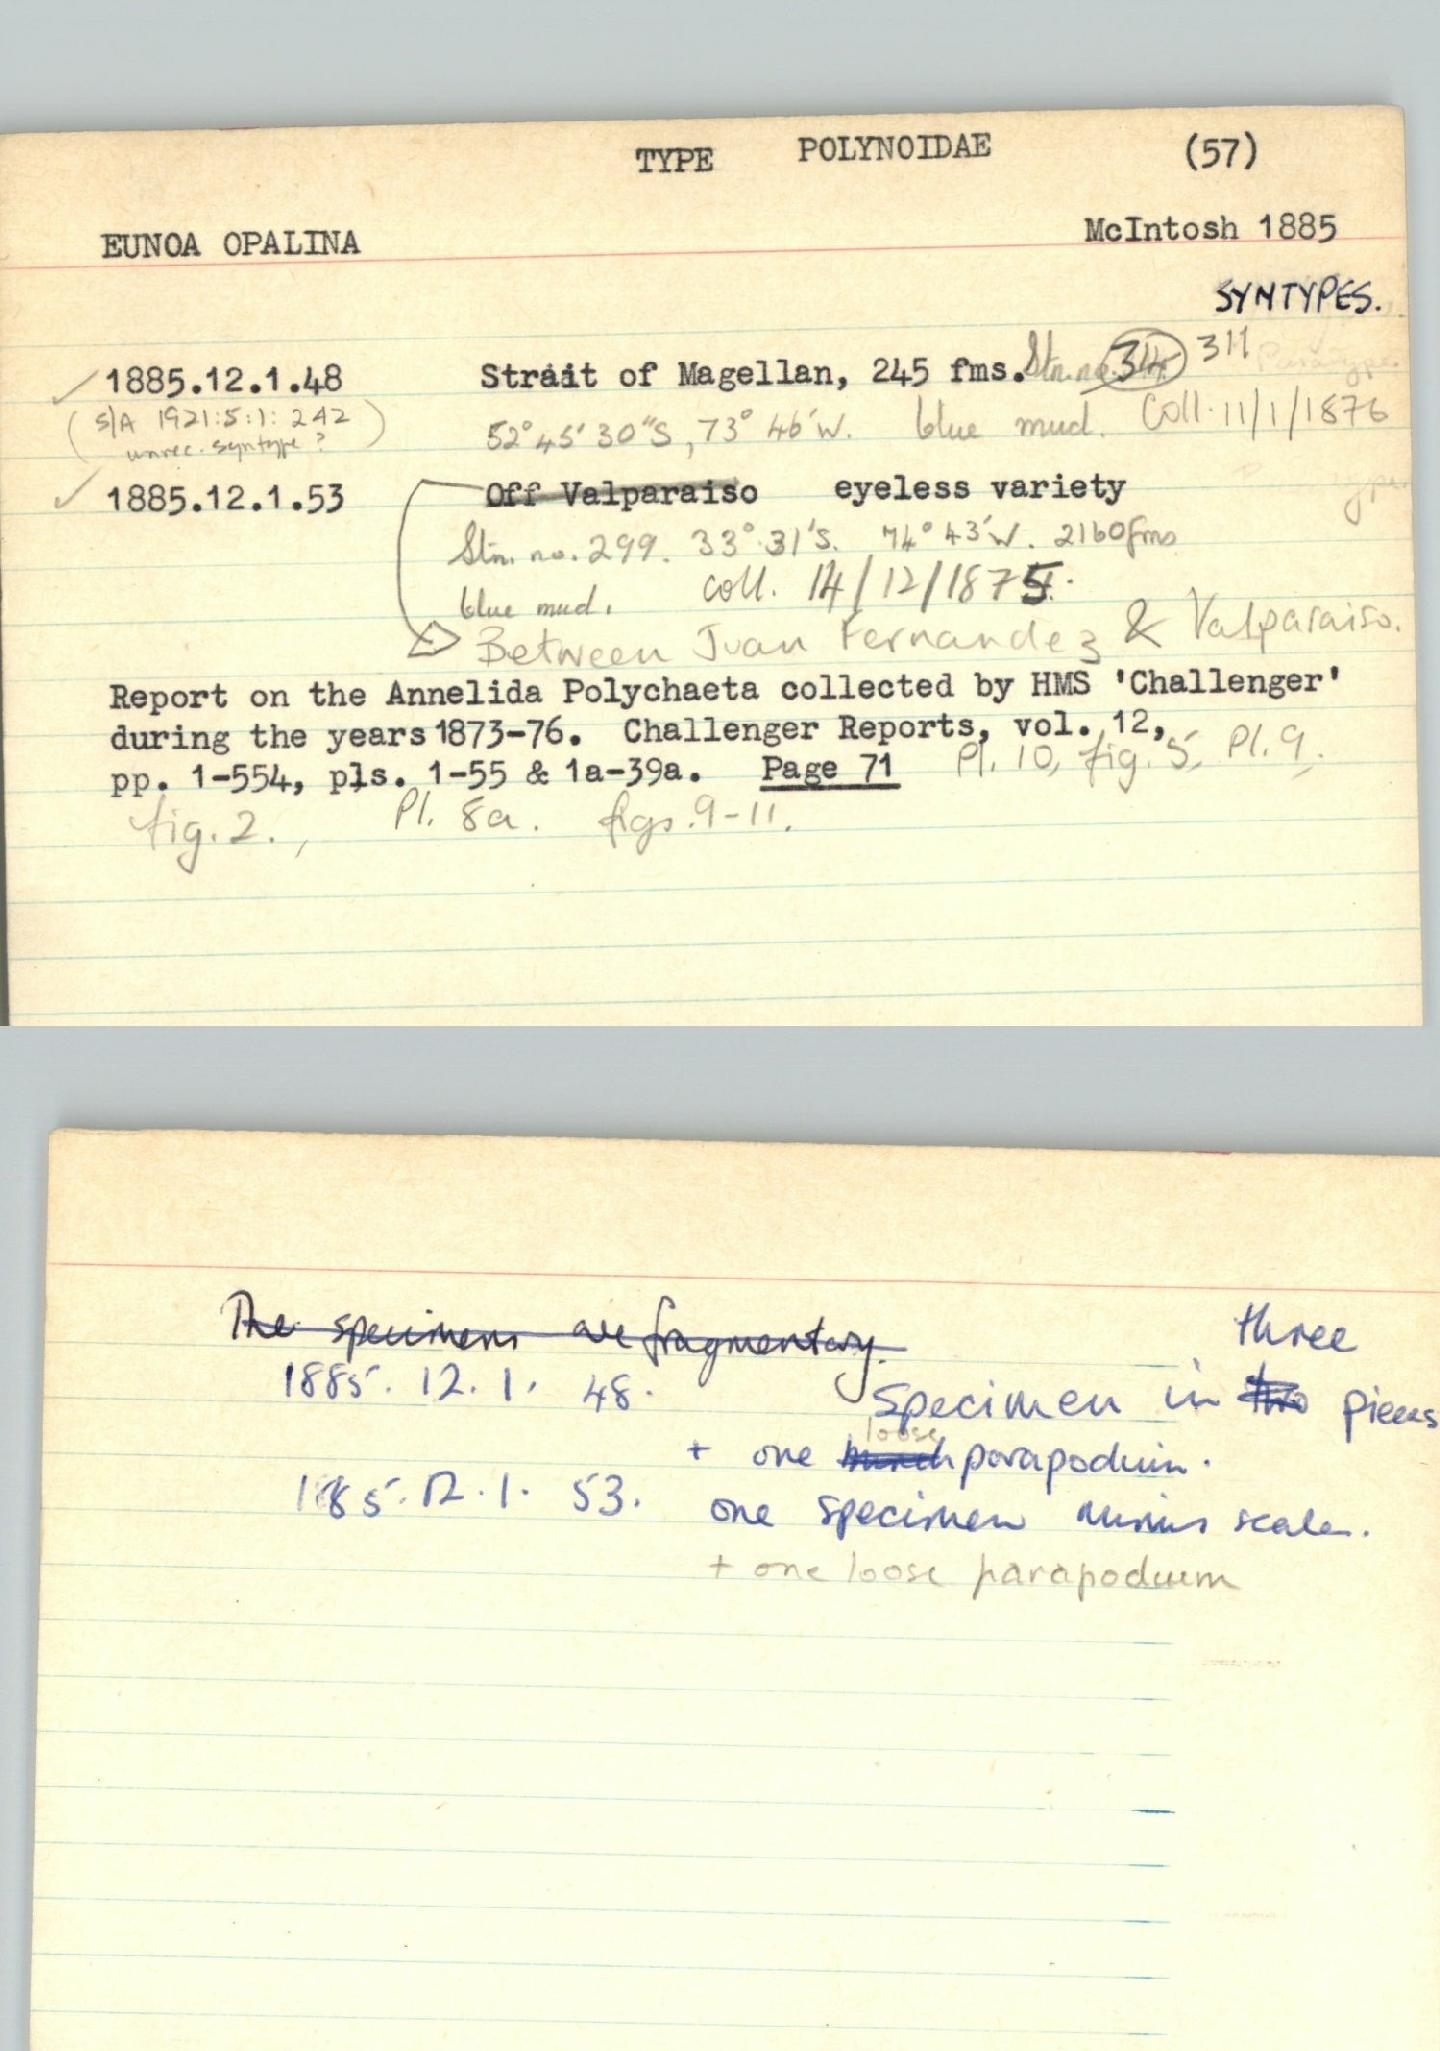 TYPE POLYNOIDAE (57)
EUNOA OPALINA McIntosh 1885
SYNTYPES.
1885.12.1.48 Strait of Magellan, 245 fms. Stn. no. 311
(S/A 1921:5:1:242 52° 45' 30"S, 73° 46'W. blue mud. Coll. 11/1/1876
unrec. syntype?)
1885.12.1.53 Off Valparaiso eyeless variety
Stn. no. 299. 33° 31'S. 74° 43'W. 2160fms
blue mud. coll. 14/12/1875.
Between Juan Fernandez & Valparaiso.
Report on the Annelida Polychaeta collected by HMS 'Challenger'
during the years 1873-76. Challenger Reports, vol. 12,
pp. 1-554, pls. 1-55 & 1a-39a. Page 71 Pl. 10, fig. 5, Pl. 9,
fig. 2., Pl. 8a. figs. 9-11.
The specimens are fragmentary. three
1885. 12. 1. 48. Specimen in two pieces
loose
+ one parapodium.
1885. 12. 1. 53. one specimen minus scales.
+ one loose parapodium